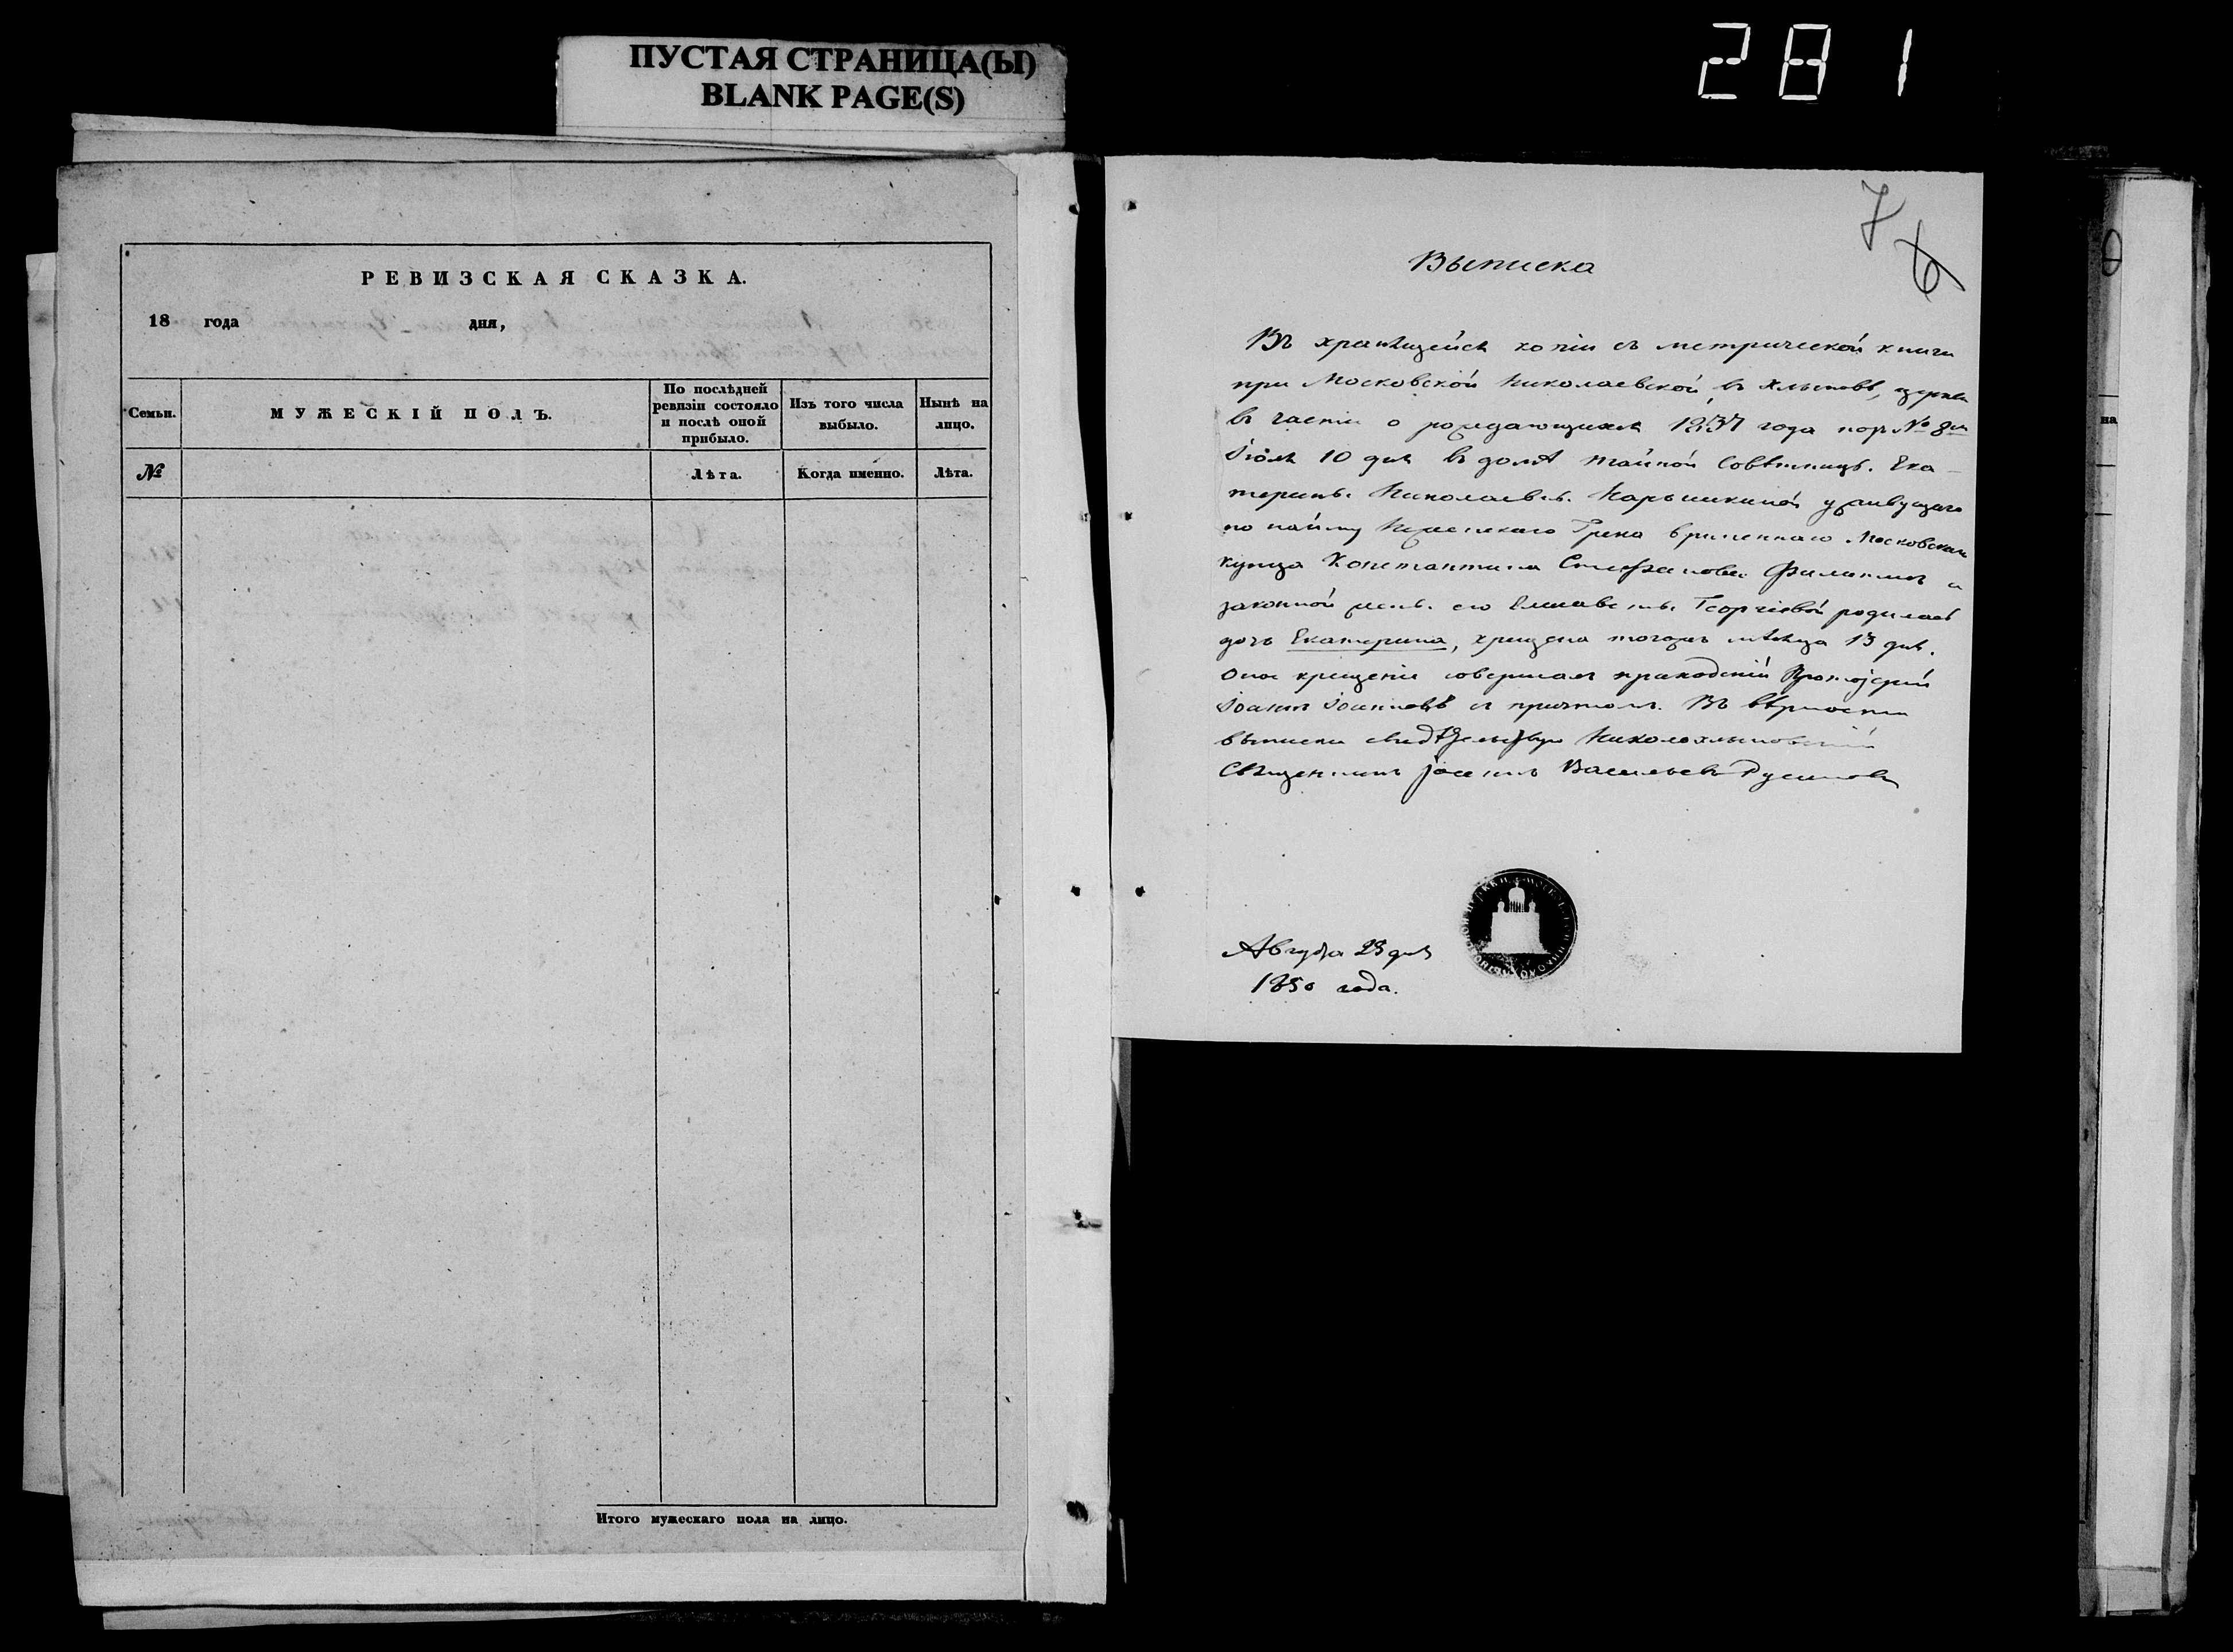 ПУСТАЯ СТРАНИЦА(Ы)
BLANK PAGE(S)
281
РЕВИЗСКАЯ СКАЗКА.
18 года дня,
Семьи.
МУЖЕСКІЙ ПОЛЪ.
По послѣдней
ревизіи состояло
и послѣ оной
прибыло.
Изъ того числа
выбыло.
Нынѣ на
лицо.
№
Лѣта.
Когда именно.
Лѣта.
Итого мужескаго пола на лицо.
7
6
Выписка
Въ хранящейся копіи съ метрической книги
при Московской Николаевской, въ Хлыновѣ, церкви
въ части о рождающихся 1837 года под №
Іюля 10 дня въ домѣ тайной Совѣтницы Ека-
терины Николаевны Нарышкиной у живущаго
по найму Грека временнаго Московскаго
купца Константина Стефанова и
законной жены его Елисаветы Георгіевой родилась
дочь Екатерина, крещена тогожъ мѣсяца 13 дня.
Оное крещеніе совершалъ приходскій Протоіерей
Іоаннъ Іоанновъ съ причтомъ. Въ вѣрности
выписки свидѣтельствую Николохлыновскій
Священникъ Васильевъ
Августа 23 дня
1850 года.
на